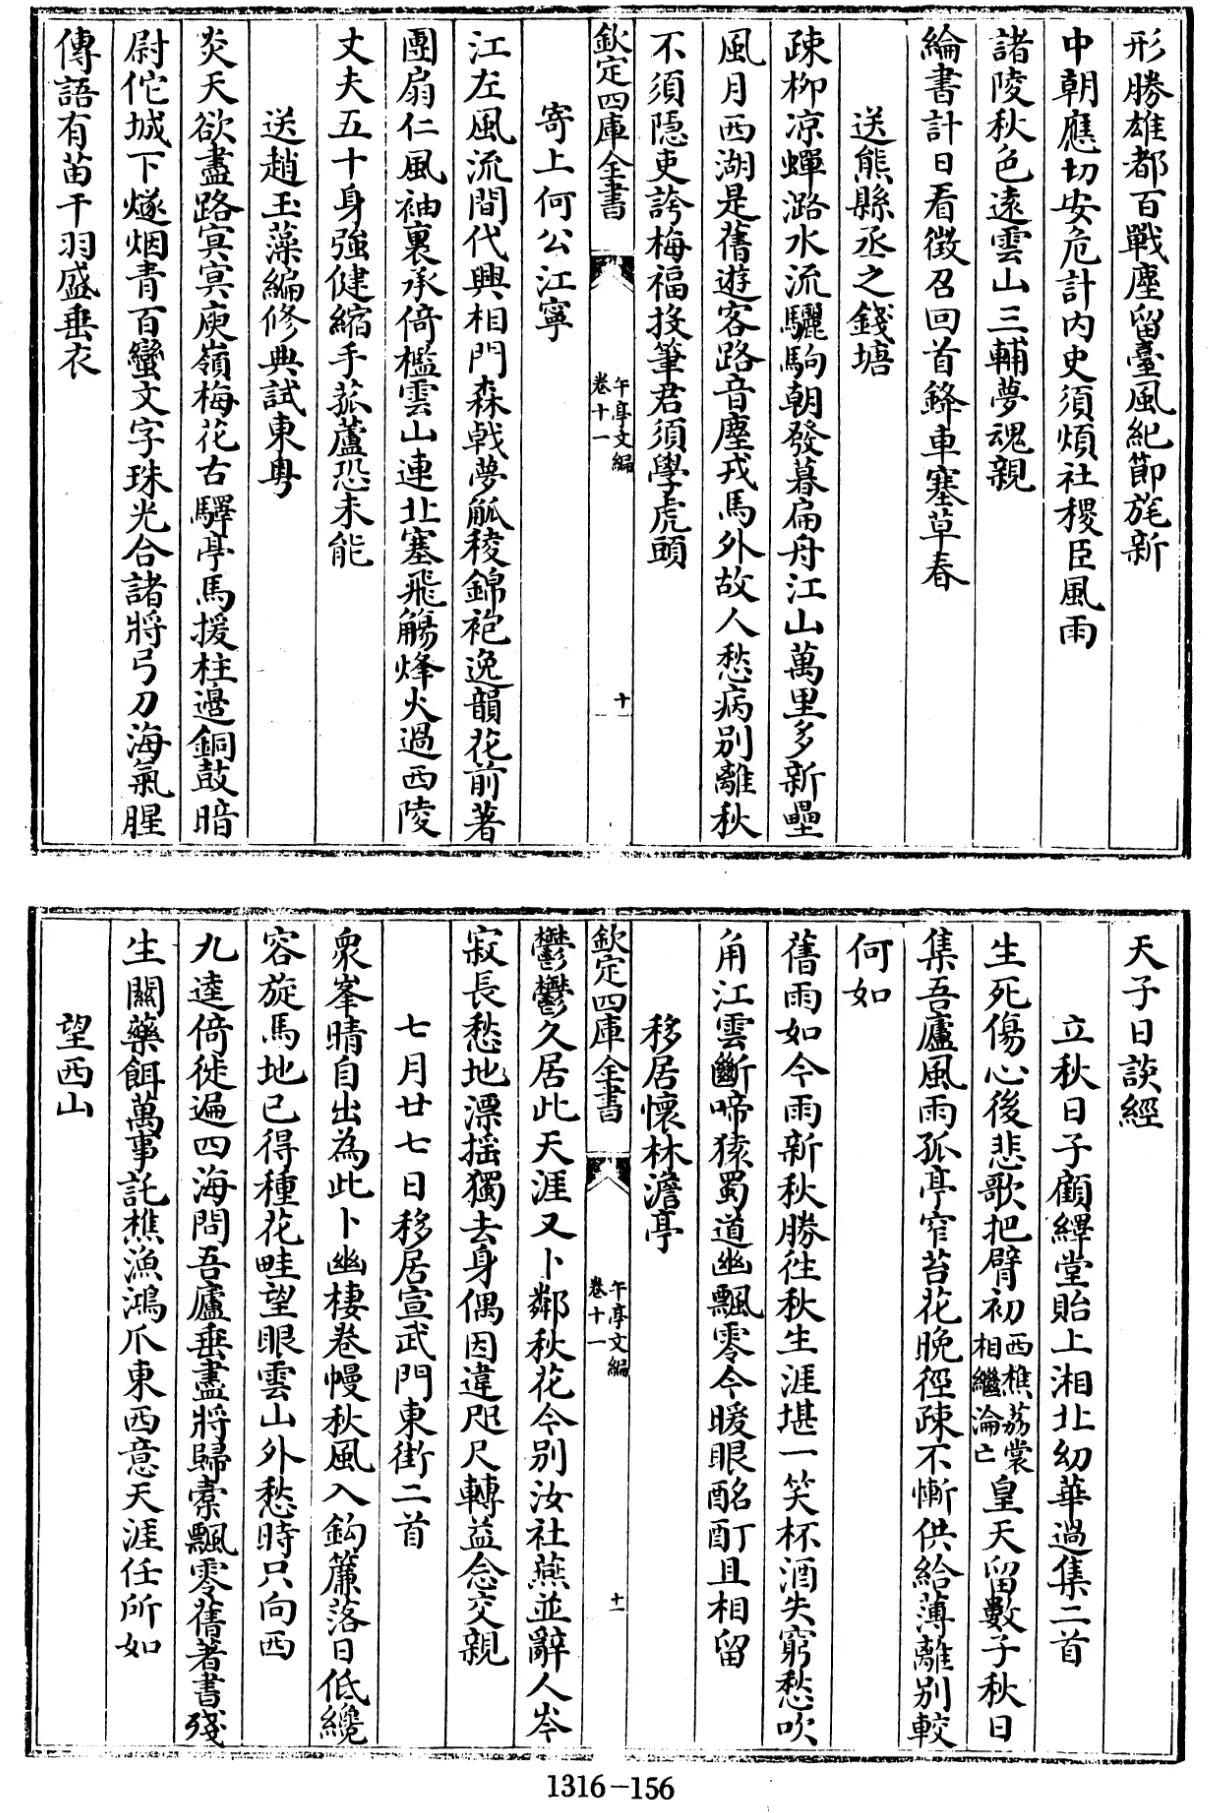 形勝雄都百戰塵留臺風紀節旄新
中朝應切安危計内史須煩社稷臣風雨
諸陵秋色遠雲山三輔夢魂親
綸書計日看徵召回首鋒車塞草春
送熊縣丞之錢塘
疎柳凉蟬潞水流驪駒朝發暮扁舟江山萬里多新壘
風月西湖是舊遊客路音塵戎馬外故人愁病别離秋
不須隠吏誇梅福投筆君須學虎頭
欽定四庫全書
午亭文編
卷十一
十
寄上何公江寧
江左風流間代興相門森戟夢觚稜錦袍逸韻花前著
團扇仁風袖裏承倚檻雲山連北塞飛觴烽火過西陵
丈夫五十身強健縮手菰蘆恐未能
送趙玉藻編修典試東粤
炎天欲盡路冥冥庾嶺梅花古驛亭馬援柱邉銅鼓暗
尉佗城下燧烟青百蠻文字珠光合諸將弓刀海氣腥
傳語有苗干羽盛垂衣
天子日談經
立秋日子顧繹堂貽上湘北幼華過集二首
生死傷心後悲歌把臂初西樵荔裳相繼淪亡皇天留數子秋日
集吾廬風雨孤亭窄苔花晚徑疎不慚供給薄離别較
何如
舊雨如今雨新秋勝徃秋生涯堪一笑杯酒失窮愁吹
角江雲斷啼猿蜀道幽飄零今暖眼酩酊且相留
移居懷林澹亭
欽定四庫全書
午亭文編
卷十一
十一
鬱鬱久居此天涯又卜鄰秋花今别汝社燕並辭人岑
寂長愁地漂揺獨去身偶因違咫尺轉益念交親
七月廿七日移居宣武門東街二首
衆峯晴自出為此卜幽棲卷幔秋風入鈎簾落日低纔
容旋馬地已得種花畦望眼雲山外愁時只向西
九逵倚徙遍四海問吾廬垂盡將歸橐飄零舊著書殘
生關藥餌萬事託樵漁鴻爪東西意天涯任所如
望西山
1316-156